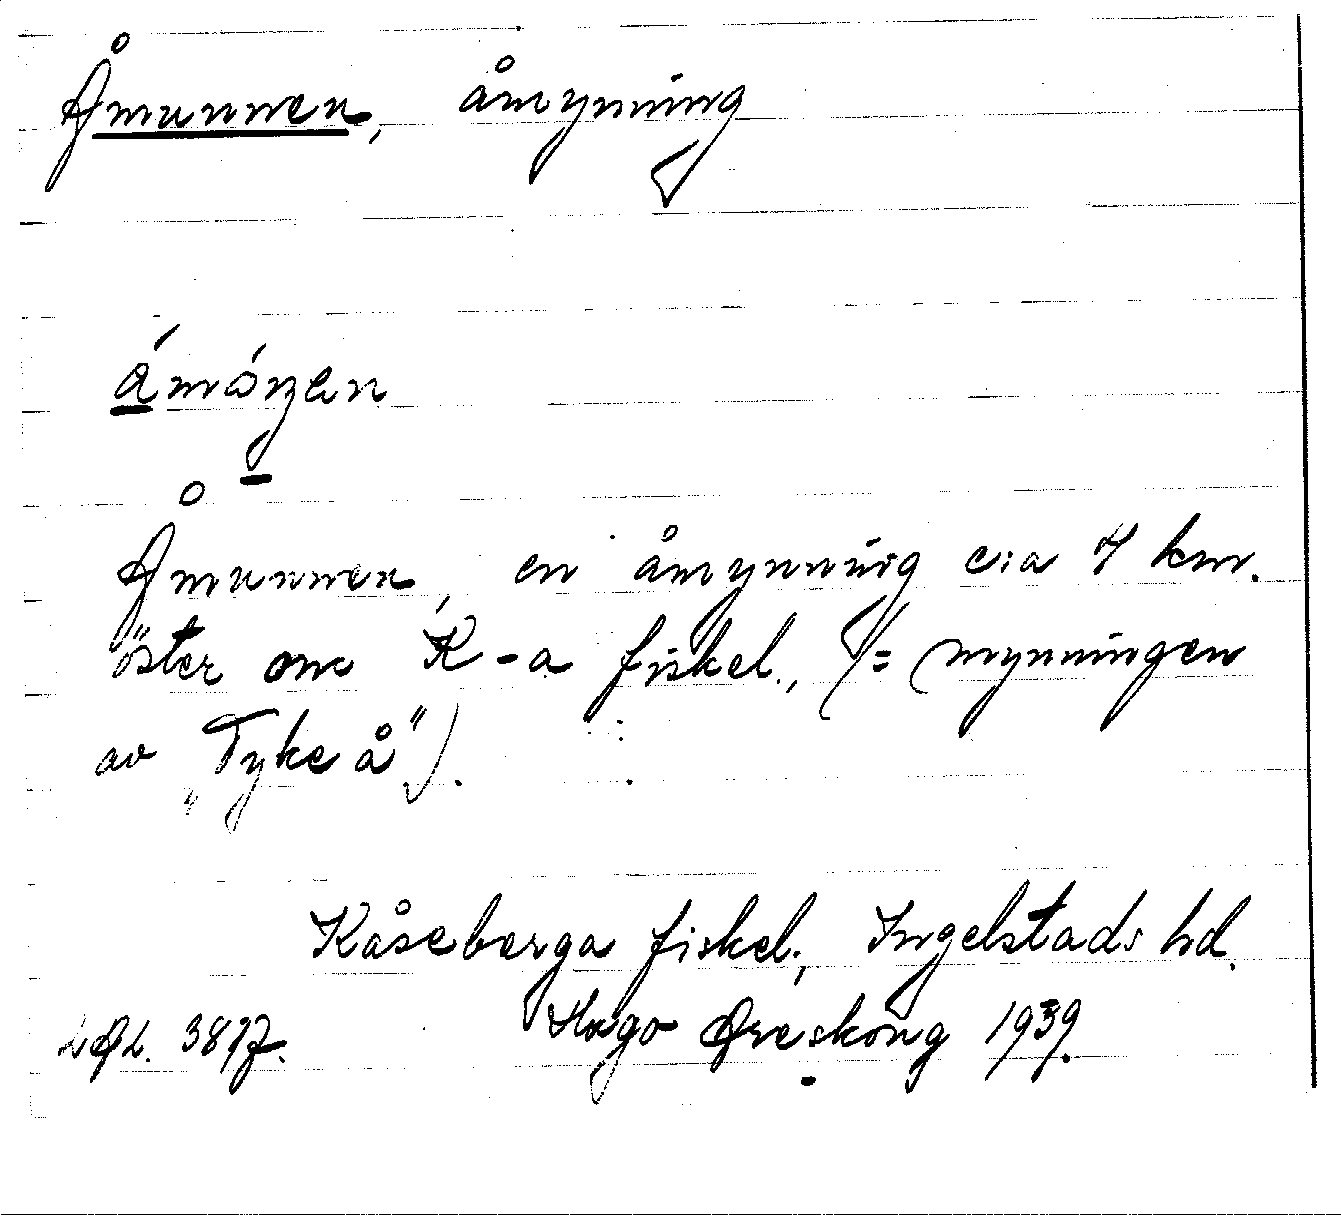 Åmunnen, åmynning
Åmunnen, en åmynning c:a 7 km.
öster om K-a fiskel., (= mynningen
av „Tyke å").
Kåseberga fiskel., Ingelstads hd.
Hugo Areskoug 1939.
LAL. 3897.